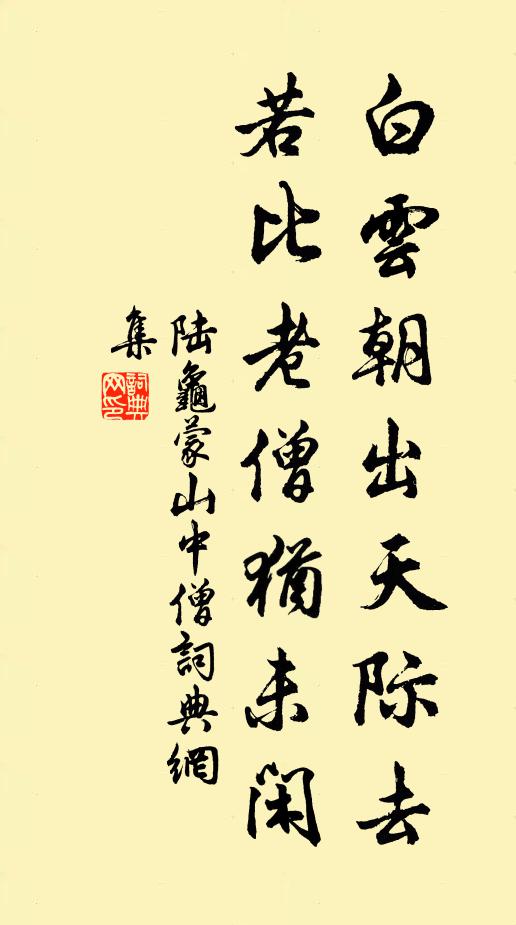 白雲朝出天际去
若比老僧猶未閑
陆龜蒙山中僧詞典網
集
詞典
网印